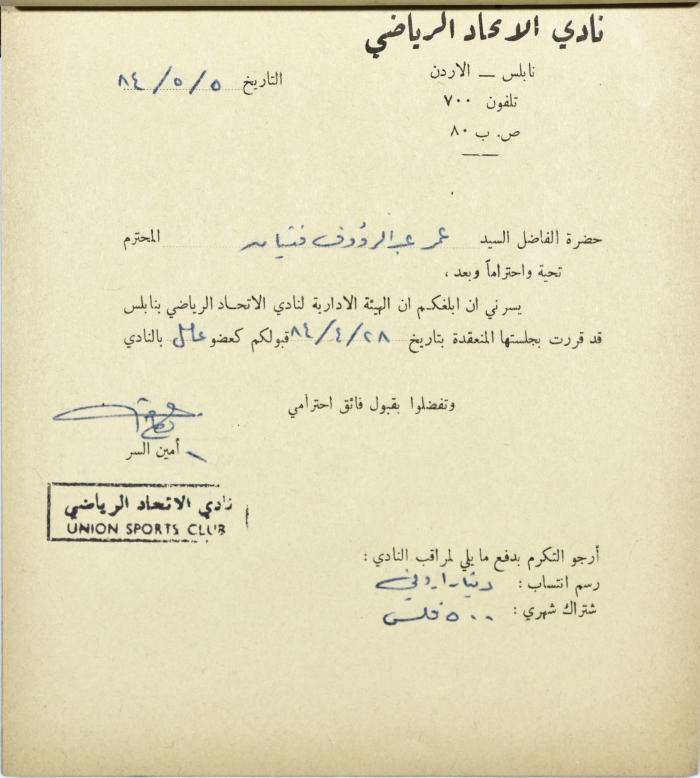 نادي الاتحاد الرياضي
نابلس — الاردن
تلفون ٧٠٠
ص. ب ٨٠
التاريخ ٨٤/٥/٥
حضرة الفاضل السيد عمر عبد الرؤوف فتيان المحترم
تحية واحتراماً وبعد ،
يسرني ان ابلغكم ان الهيئة الادارية لنادي الاتحاد الرياضي بنابلس
قد قررت بجلستها المنعقدة بتاريخ ٨٤/٤/٢٨ قبولكم كعضو عامل بالنادي
وتفضلوا بقبول فائق احترامي
أمين السر
نادي الاتحاد الرياضي
UNION SPORTS CLUB
أرجو التكرم بدفع ما يلي لمراقب النادي :
رسم انتساب : دينار اردني
شتراك شهري : ٥٠٠ فلس